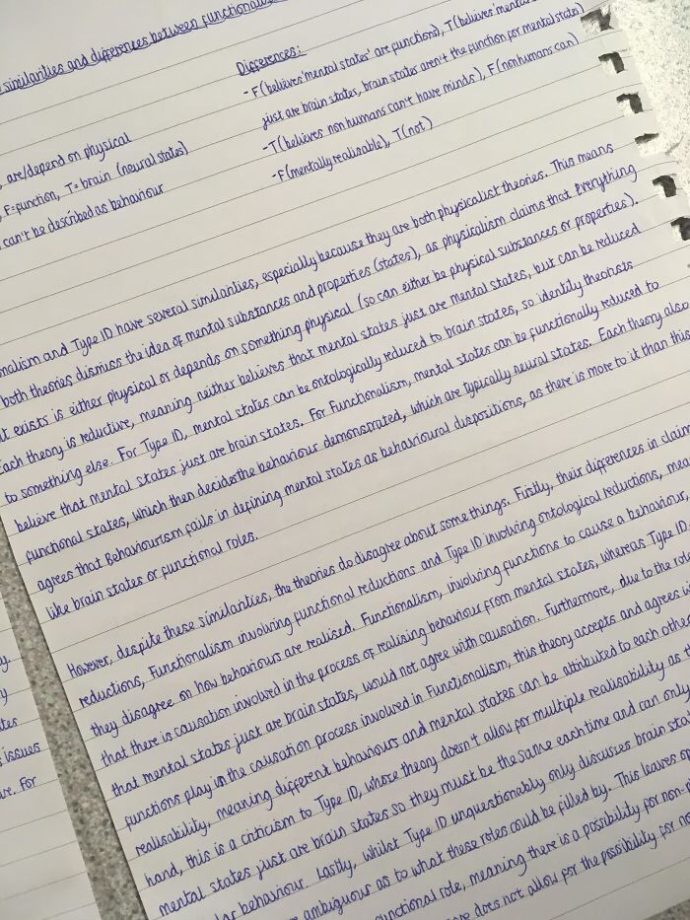 similarities and differences between functionalis
Differences:
- F(believes 'mental states' are functions), T(believes 'mental
just are brain states, brain states aren't the function for mental states)
- T(believes non humans can't have minds), F(non humans can)
- F(mentally realisable), T(not)
are/depend on physical
F=function, T=brain (neural states)
can't be described as behaviour
nalism and Type ID have several similarities, especially because they are both physicalist theories. This means
both theories dismiss the idea of mental substances and properties (states), as physicalism claims that everything
t exists is either physical or depends on something physical (so can either be physical substances or properties).
Each theory is reductive, meaning neither believes that mental states just are mental states, but can be reduced
to something else. For Type ID, mental states can be ontologically reduced to brain states, so identity theorists
believe that mental states just are brain states. For Functionalism, mental states can be functionally reduced to
functional states, which then decides the behaviour demonstrated, which are typically neural states. Each theory also
agrees that Behaviourism fails in defining mental states as behavioural dispositions, as there is more to it than this
like brain states or functional roles.
However, despite these similarities, the theories do disagree about some things. Firstly, their differences in claim
reductions, Functionalism involving functional reductions and Type ID involving ontological reductions, mea
they disagree on how behaviours are realised. Functionalism, involving functions to cause a behaviour,
that there is causation involved in the process of realising behaviour from mental states, whereas Type ID
that mental states just are brain states, would not agree with causation. Furthermore, due to the role
functions play in the causation process involved in Functionalism, this theory accepts and agrees wi
realisability, meaning different behaviours and mental states can be attributed to each other
hand, this is a criticism to Type ID, whose theory doesn't allow for multiple realisability as th
mental states just are brain states so they must be the same each time and can only
lar behaviour. Lastly, whilst Type ID unquestionably only discusses brain sta
ambiguous as to what these roles could be filled by. This leaves op
unctional role, meaning there is a possibility for non-
does not allow for the possibility for no
y.
y
tes
issues
ve. For